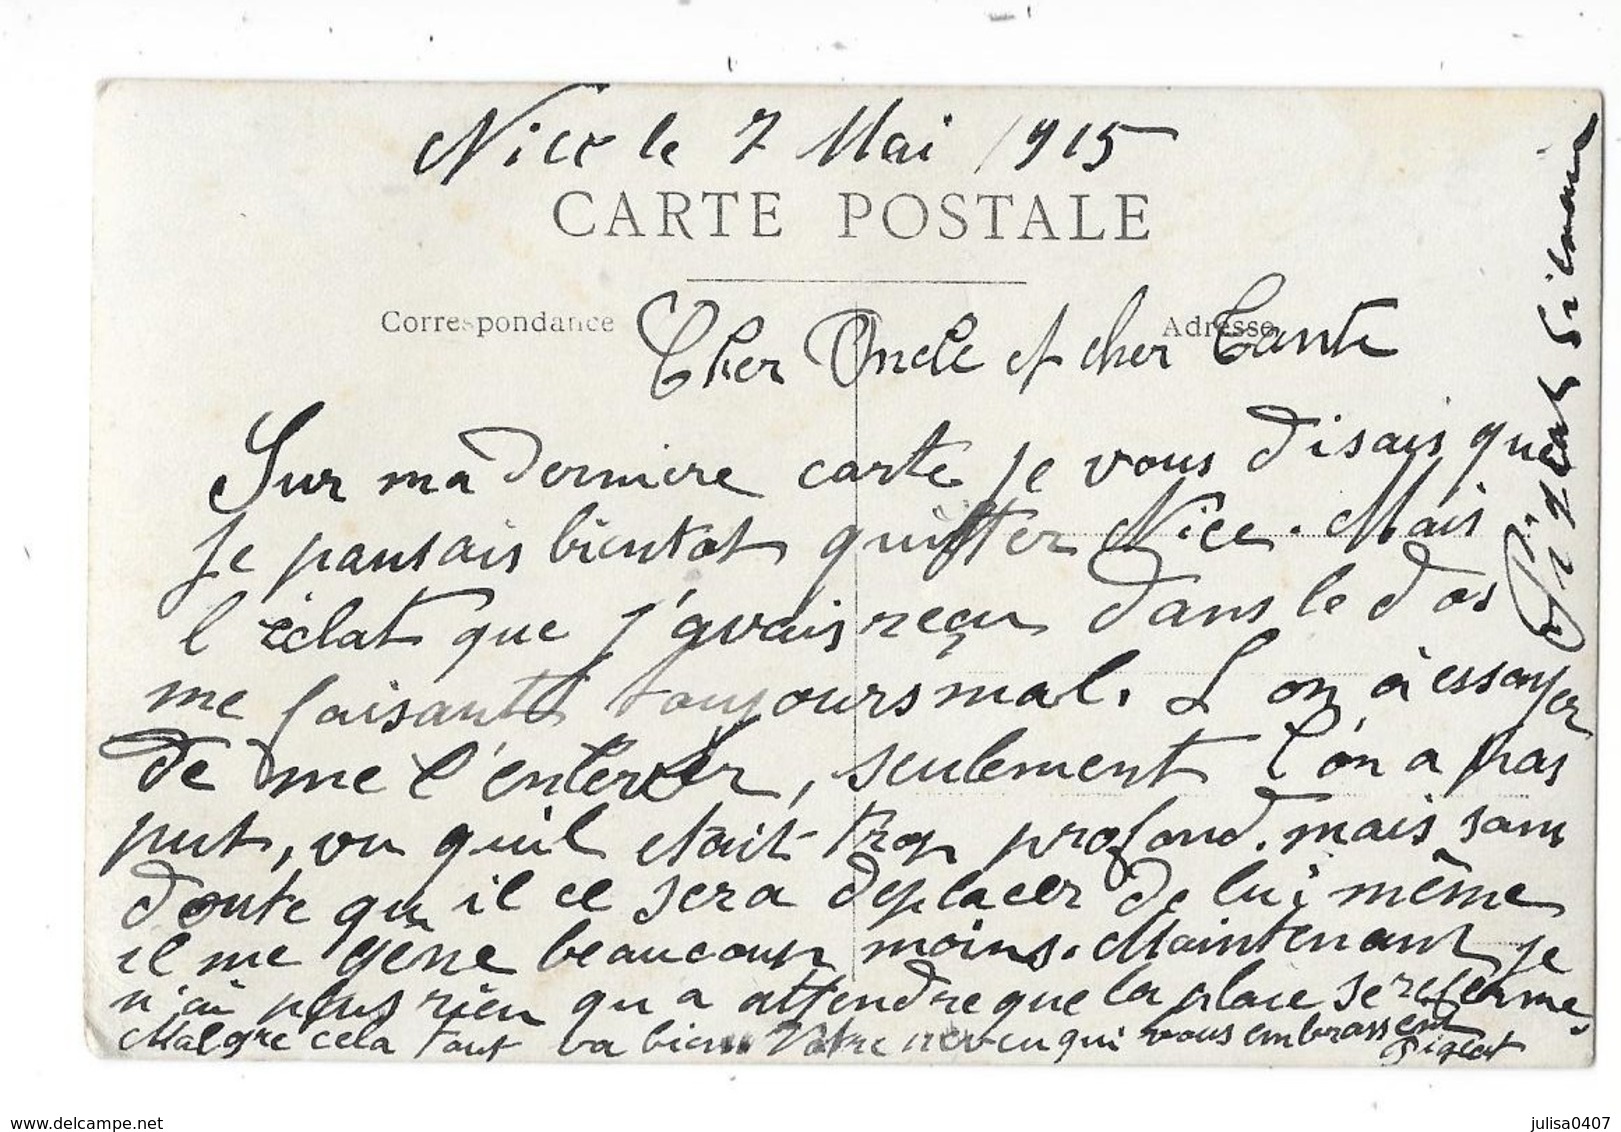 Nice le 7 Mai 1915
CARTE POSTALE
Correspondance
Adresse
Cher Oncle et cher Tante
Sur ma derniere carte je vous disais que
je pansais bientot quitter Nice. Mais
l'éclat que j'avais reçu dans le dos
me faisante toujours mal. L on à essayer
de me l'enlerver, seulement l'on a pas
put, vu qu'il etait trop profond. mais sans
doute qu il ce sera deplacer de lui même
il me gène beaucoup moins. Maintenant je
n'ai plus rien qu a attendre que la place se referme.
Malgré cela tout va bien Votre neveu qui vous embrassent
Pigeat
Pigeat
julisa0407